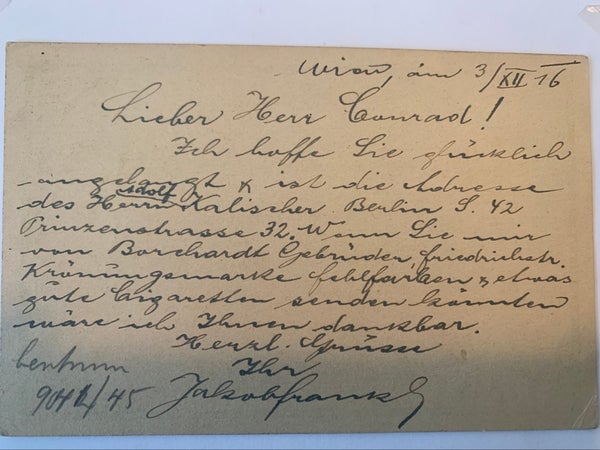 Wien, am 3/XII 16
Lieber Herr Conrad!
Ich hoffe Sie glücklich
angelangt & ist die Adresse
des Herrn Adolf Kalischer Berlin S. 42
Prinzenstrasse 32. Wenn Sie mir
von Borchardt Gebrüder, friedrichstr.
Krönungsmarke fehlfarben & etwas
gute Cigaretten senden könnten
wäre ich Ihnen dankbar.
Herzl. Grüsse
Ihr
Jakob frankl
9041/45